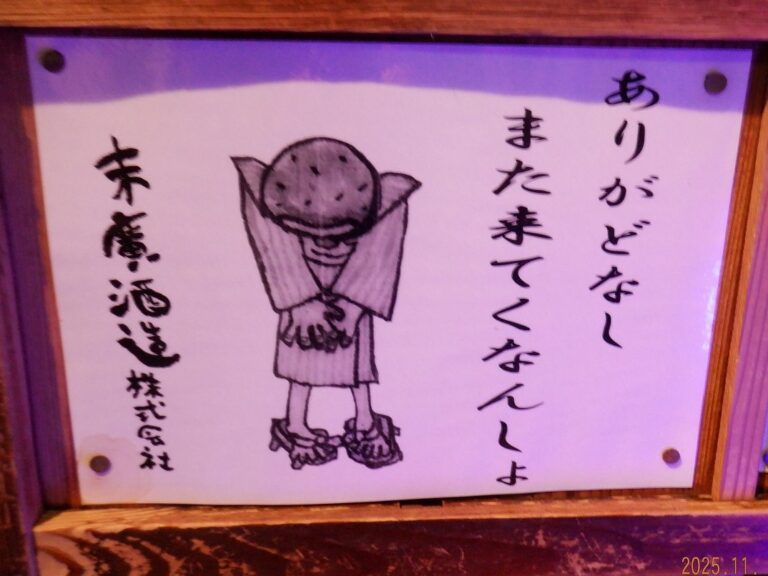 ありがどなし
また来てくなんしょ
末廣酒造株式会社
2025.11.